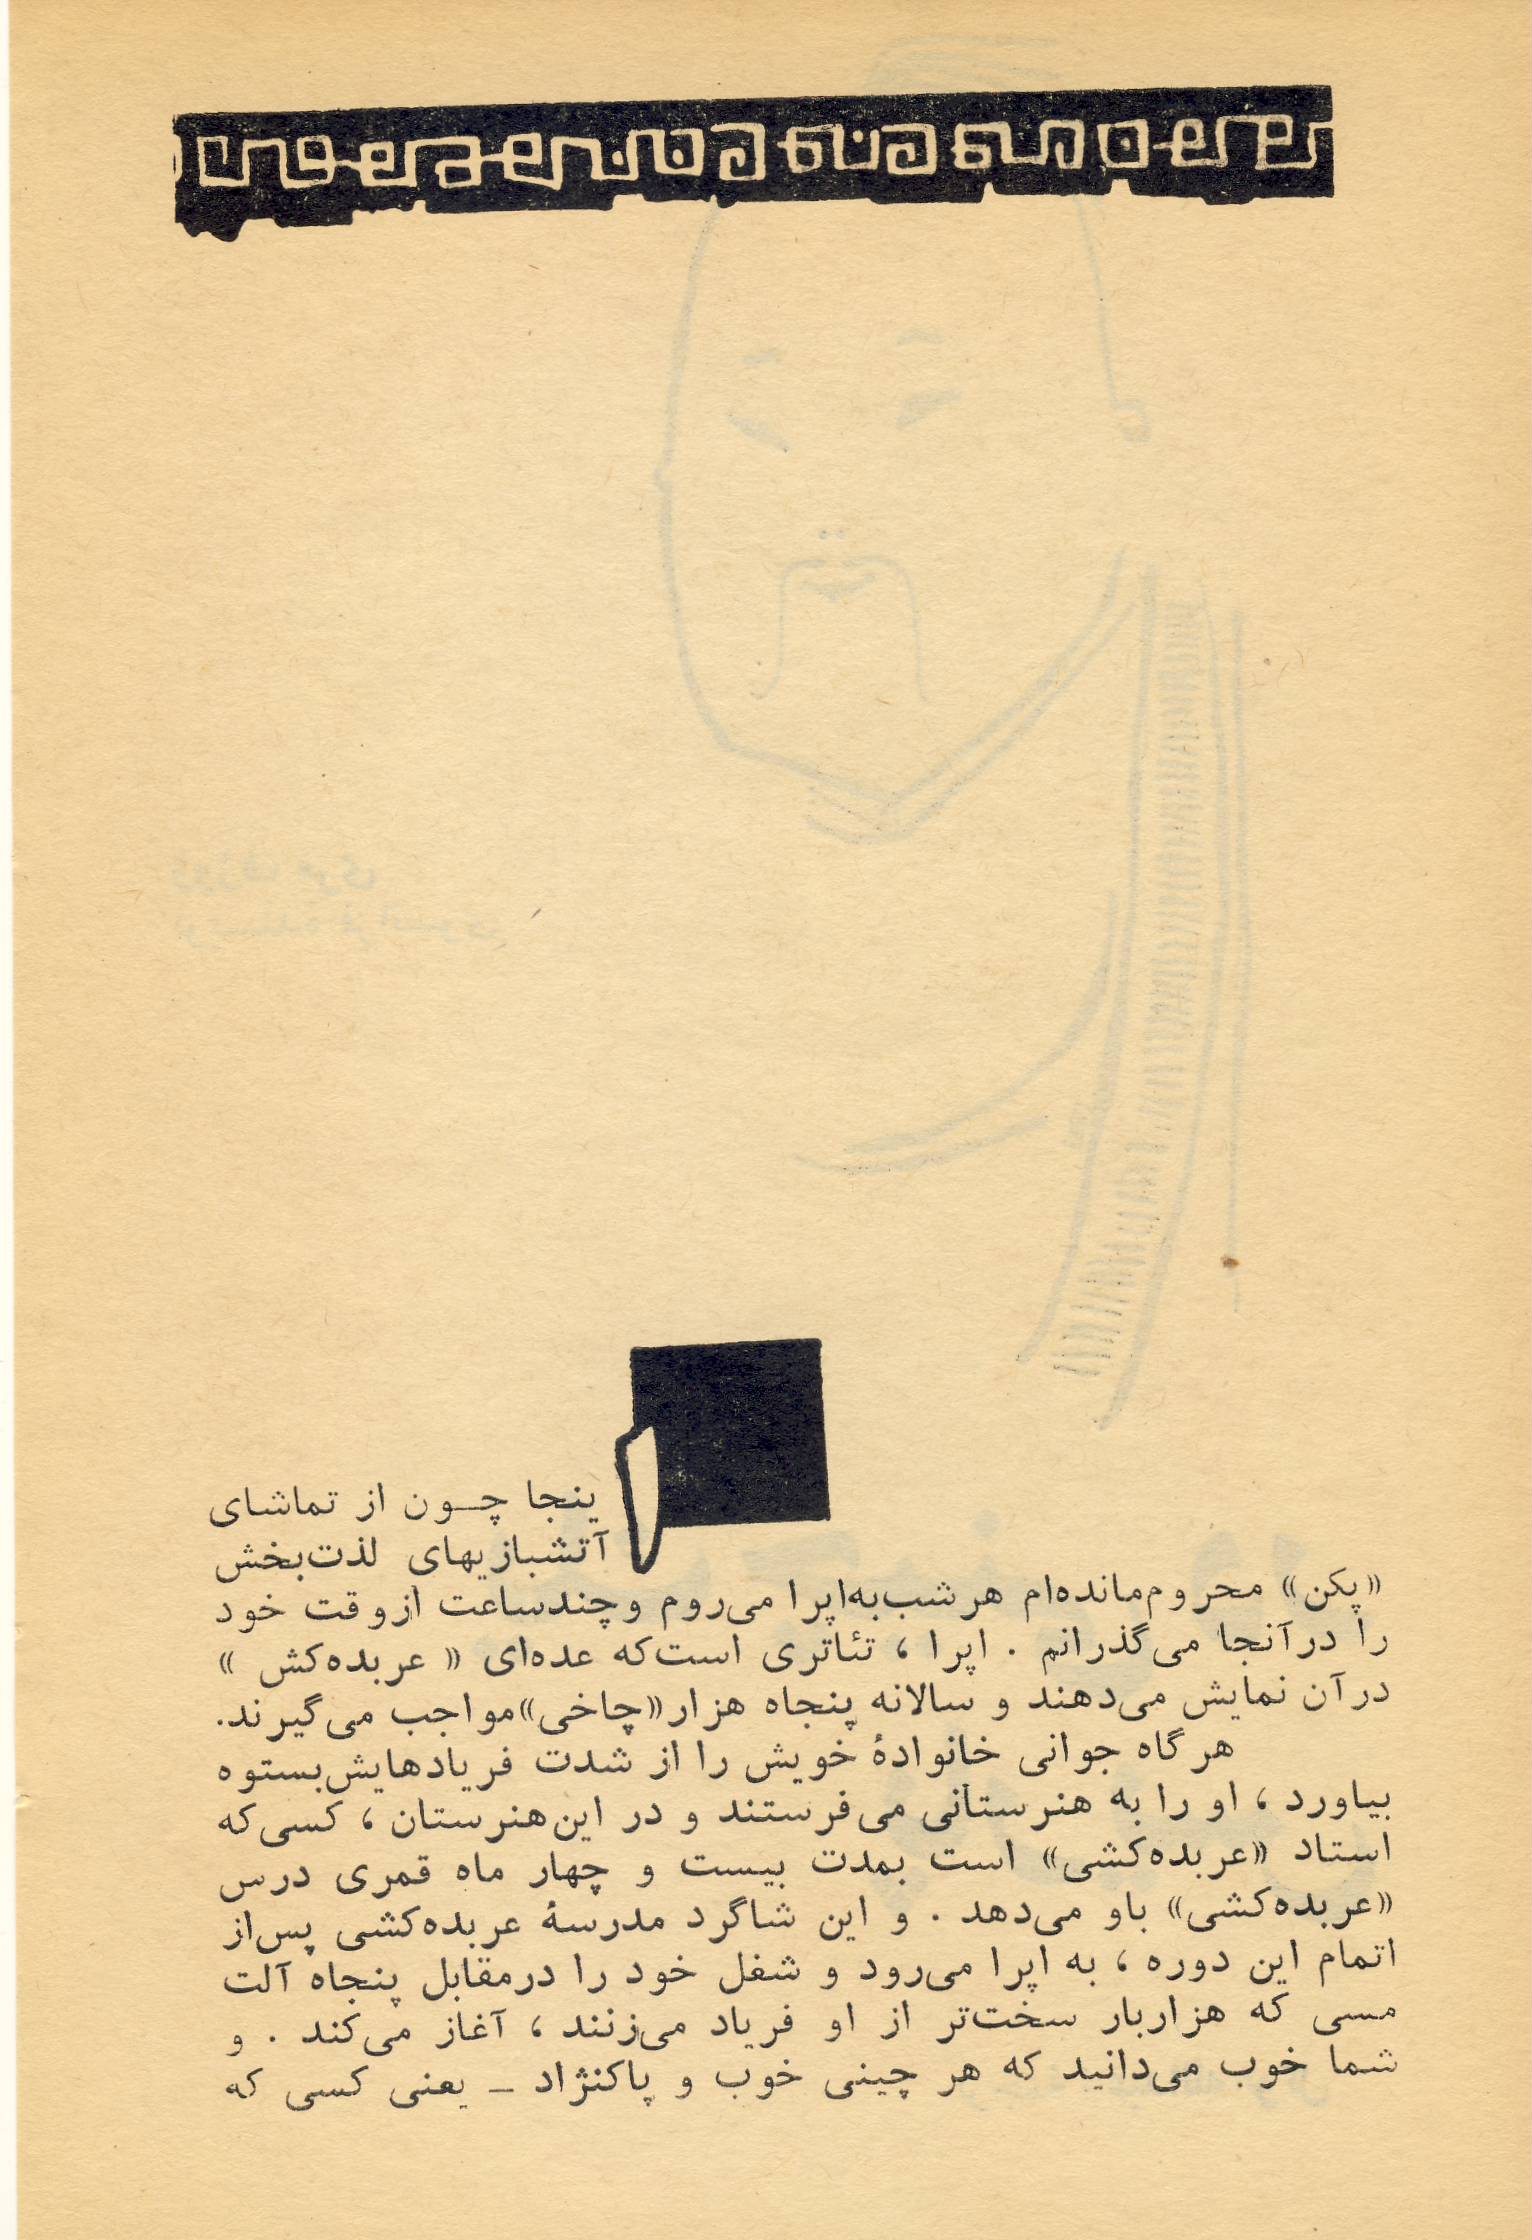 اینجا چون از تماشای
آتشبازیهای لذت‌بخش
«پکن» محروم‌مانده‌ام هرشب‌به‌اپرا می‌روم و چندساعت از وقت خود
را درآنجا می‌گذرانم . اپرا ، تئاتری است‌که عده‌ای « عربده‌کش »
درآن نمایش می‌دهند و سالانه پنجاه هزار «چاخی» مواجب می‌گیرند.
هرگاه جوانی خانوادهٔ خویش را از شدت فریادهایش‌بستوه
بیاورد ، او را به هنرستانی می‌فرستند و در این‌هنرستان ، کسی‌که
استاد «عربده‌کشی» است بمدت بیست و چهار ماه قمری درس
«عربده‌کشی» باو می‌دهد . و این شاگرد مدرسهٔ عربده‌کشی پس‌از
اتمام این دوره ، به اپرا می‌رود و شغل خود را درمقابل پنجاه آلت
مسی که هزاربار سخت‌تر از او فریاد می‌زنند ، آغاز می‌کند . و
شما خوب می‌دانید که هر چینی خوب و پاکنژاد ـ یعنی کسی که